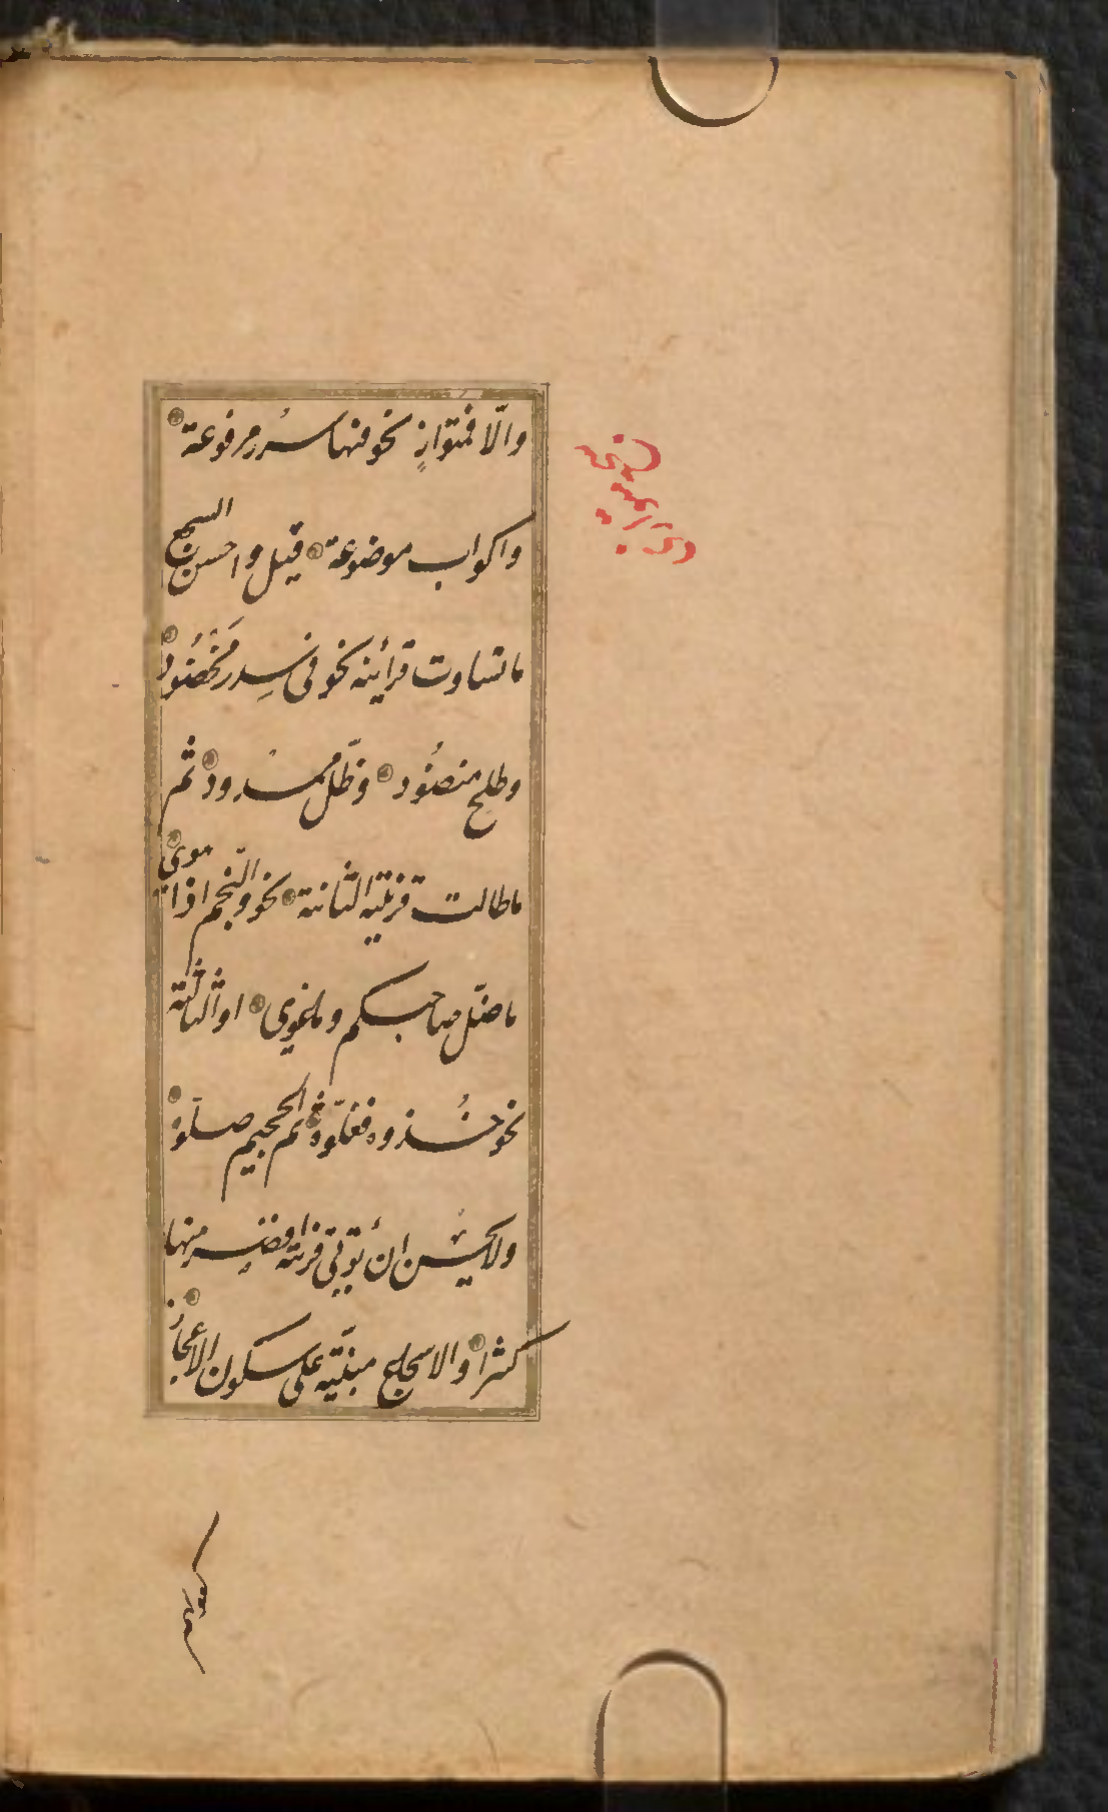 والّا فمتوازٍ نحو فيها سُرر مرفوعة
واكواب موضوعة قيل واحسن السجع
ما تساوت قرائنه نحو في سِدر مَخْضُود
وطلح منضُود وظلّ ممدود ثم
ما طالت قرينته الثانية نحو والنّجم اذا هوى
ما ضلّ صاحبكم وما غوى او الثالثة
نحو خُذوه فغلّوه ثم الجحيم صلّوه
ولا يحسن ان يُؤتى قرينة اقصر منها
كثيرا والاسجاع مبنيّة على سكون الاعجاز